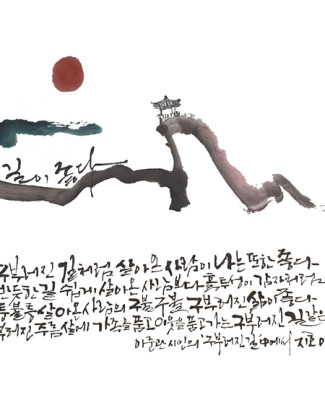 길이 좋다
구부러진 길처럼 살아온 사람이 나는 또한 좋다
반듯한 길 쉽게 살아온 사람보다 흙투성이 감자처럼
울퉁불퉁 살아온 사람의 구불구불 구부러진 삶이 좋다
구부러진 주름살에 가족을 품고 이웃을 품고 가는 구부러진 길 같은
이준관 시인의 '구부러진 길' 中에서